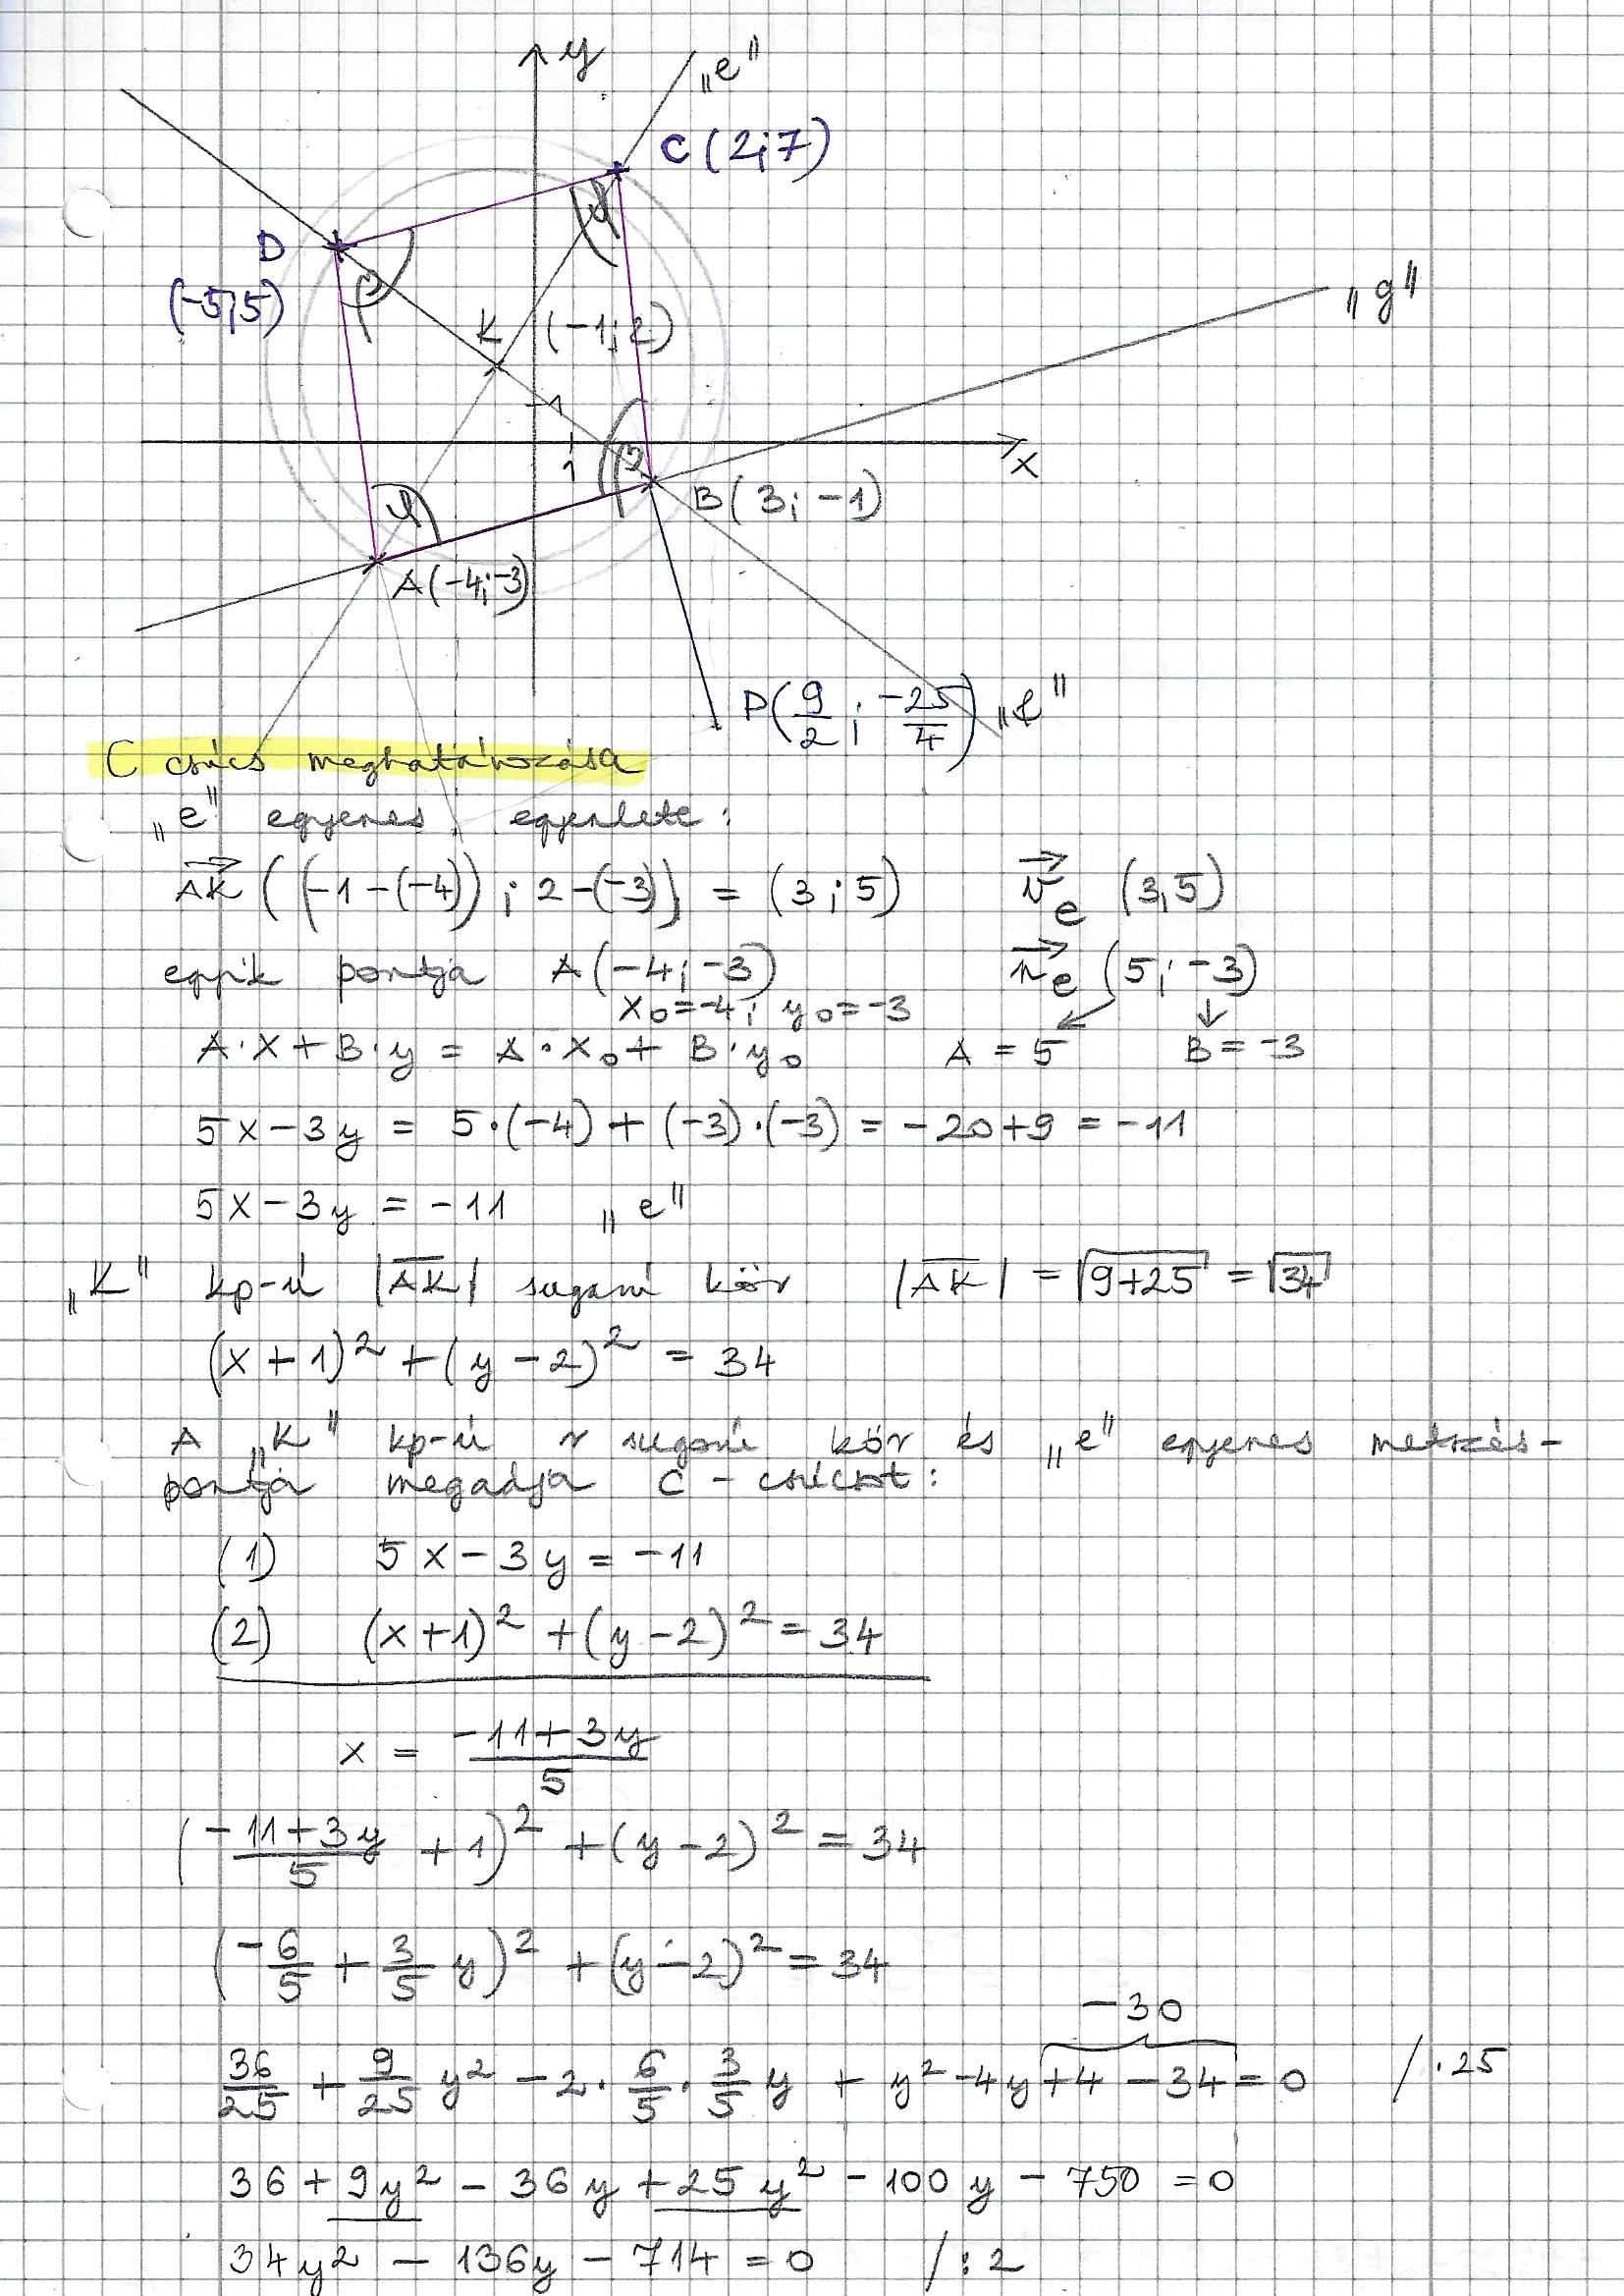 y
„e"
C (2;7)
D
(-5;5)
β
γ
K (-1;2)
„g"
1
1
x
β
B (3; -1)
A (-4; -3)
P(9/2; -25/4)
„f"
C csúcs meghatározása
„e" egyenes egyenlete:
AK ((-1-(-4)); 2-(-3)) = (3;5)   v_e (3,5)
egyik pontja A(-4; -3)   n_e (5; -3)
x₀ = -4; y₀ = -3
A·x + B·y = A·x₀ + B·y₀   A = 5   B = -3
5x - 3y = 5·(-4) + (-3)·(-3) = -20+9 = -11
5x - 3y = -11   „e"
„K" kp-ú |AK| sugarú kör   |AK| = √(9+25) = √34
(x+1)² + (y-2)² = 34
A „K" kp-ú r sugarú kör és „e" egyenes metszés-
pontja megadja C - csúcsot:
(1)   5x - 3y = -11
(2)   (x+1)² + (y-2)² = 34
x = (-11+3y)/5
((-11+3y)/5 + 1)² + (y-2)² = 34
(-6/5 + 3/5 y)² + (y-2)² = 34
-30
36/25 + 9/25 y² - 2·6/5·3/5 y + y² - 4y + 4 - 34 = 0   /·25
36 + 9y² - 36y + 25y² - 100y - 750 = 0
34y² - 136y - 714 = 0   /:2